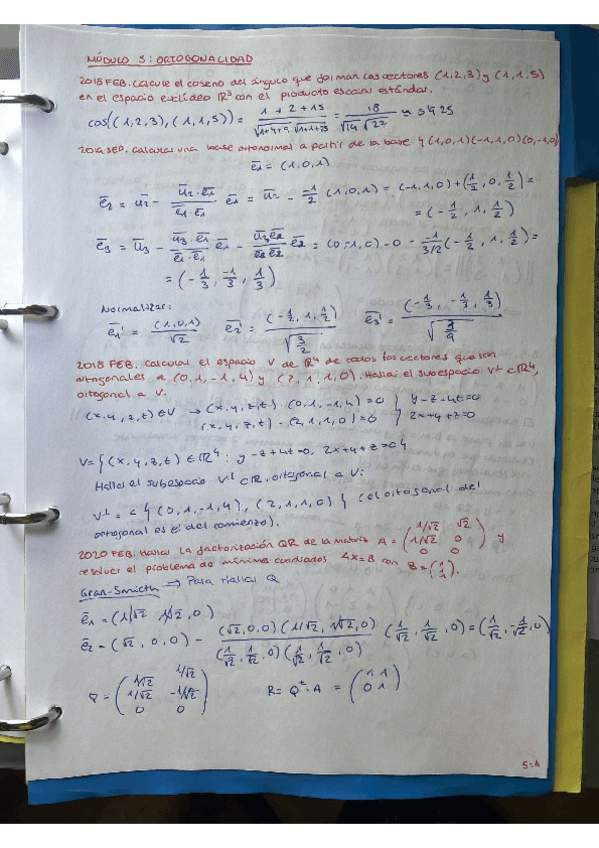 MÓDULO 5: ORTOGONALIDAD
2018 FEB. Calcule el coseno del ángulo que forman los vectores (1,2,3) y (1,1,5)
en el espacio euclídeo R³ con el producto escalar estándar.
cos((1,2,3),(1,1,5)) = (1+2+15)/(√1+4+9 √1+1+25) = 18/(√14 √27) ≈ 0'925
2019 SEP. Calcular una base ortonormal a partir de la base {(1,0,1)(-1,1,0)(0,-1,0)
e̅₁ = (1,0,1)
e̅₂ = u̅₂ - (u̅₂·e̅₁)/(e̅₁·e̅₁) e̅₁ = u̅₂ - (-1/2)(1,0,1) = (-1,1,0)+(1/2,0,1/2) =
= (-1/2, 1, 1/2)
e̅₃ = u̅₃ - (u̅₃·e̅₁)/(e̅₁·e̅₁) e̅₁ - (u̅₃e̅₂)/(e̅₂e̅₂) e̅₂ = (0-1,0) - 0 - (-1)/(3/2) (-1/2, 1, 1/2) =
= (-1/3, -1/3, 1/3)
Normalizar:
e̅₁' = (1,0,1)/√2 e̅₂' = (-1/2, 1, 1/2)/√(3/2) e̅₃' = (-1/3, -1/3, 1/3)/√(3/9)
2018 FEB. Calcular el espacio V de R⁴ de todos los vectores que son
ortogonales a (0,1,-1,4) y (2,1,1,0). Hallar el subespacio V⊥ ⊂ R⁴,
ortogonal a V.
(x,y,z,t) ∈ V → (x,y,z,t)·(0,1,-1,4)=0 } y-z-4t=0
(x,y,z,t)·(2,1,1,0)=0 } 2x+y+z=0
V={(x,y,z,t) ∈ R⁴: y-z+4t=0, 2x+y+z=0}
Hallar el subespacio V⊥ ⊂ R, ortogonal a V:
V⊥ = <{(0,1,-1,4), (2,1,1,0)} (el ortogonal del
ortogonal es el del comienzo).
2020 FEB. Hallar la factorización QR de la matriz A = (1/√2 √2; 1/√2 0; 0 0) y
resolver el problema de mínimos cuadrados AX=B con B=(1; 1; 1).
Gram-Smicth → Para Hallar Q
e̅₁ = (1/√2 1/√2, 0)
e̅₂ = (√2, 0, 0) - (√2,0,0)(1/√2, 1/√2, 0)/((1/√2, 1/√2, 0)(1/√2, 1/√2, 0)) (1/√2, 1/√2, 0) = (1/√2, -1/√2, 0)
Q = (1/√2 1/√2; 1/√2 -1/√2; 0 0) R = Qᵗ·A = (1 1; 0 1)
5.1